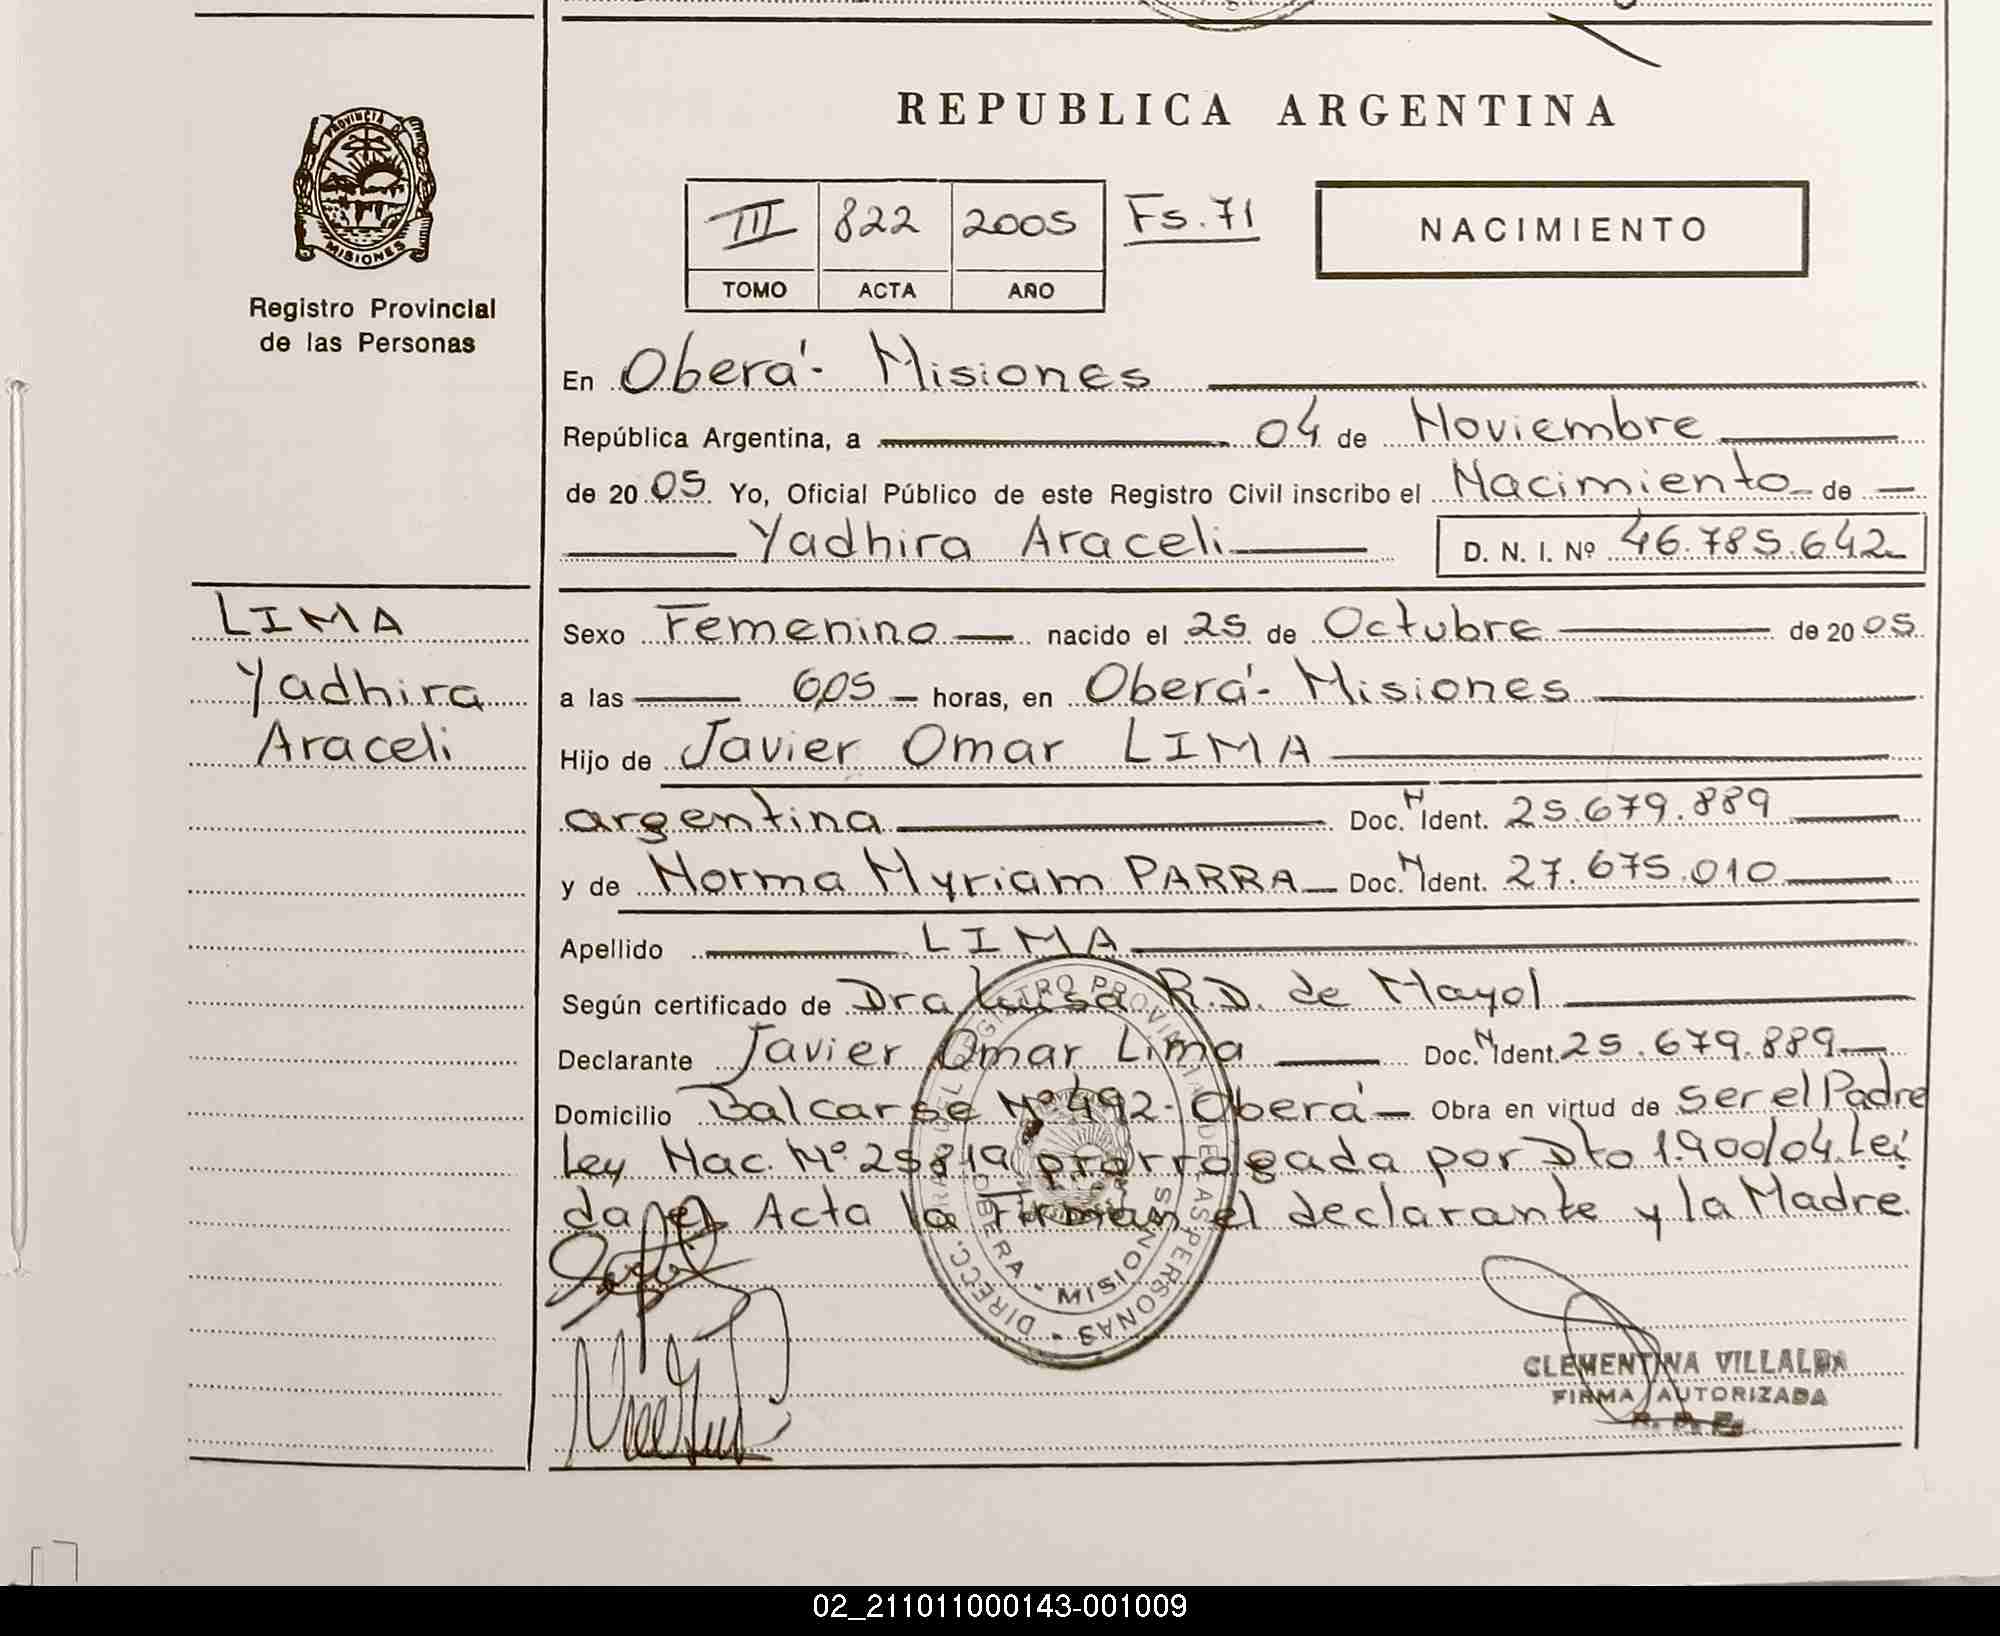 REPUBLICA ARGENTINA
PROVINCIA DE
MISIONES
Registro Provincial
de las Personas
III 822 2005 Fs. 71
TOMO ACTA AÑO
NACIMIENTO
En Oberá - Misiones
República Argentina, a 04 de Noviembre
de 2005. Yo, Oficial Público de este Registro Civil inscribo el Nacimiento de
Yadhira Araceli D. N. I. Nº 46.785.642
LIMA
Yadhira
Araceli
Sexo Femenino nacido el 25 de Octubre de 2005
a las 6,05 horas, en Oberá - Misiones
Hijo de Javier Omar LIMA
argentina Doc. N Ident. 25.679.889
y de Norma Myriam PARRA Doc. N Ident. 27.675.010
Apellido LIMA
Según certificado de Dra Luisa R.D. de Mayol
Declarante Javier Omar Lima Doc. N Ident. 25.679.889
Domicilio Balcarse Nº 492 - Oberá Obra en virtud de ser el Padre
Ley Nac. Nº 25819 prorrogada por Dto 1.900/04. Leí
da el Acta la Firman el declarante y la Madre.
DIRECC. GRAL. DEL REGISTRO PROVINCIAL DE LAS PERSONAS
OBERA - MISIONES
CLEMENTINA VILLALBA
FIRMA AUTORIZADA
R. P. P.
02_211011000143-001009